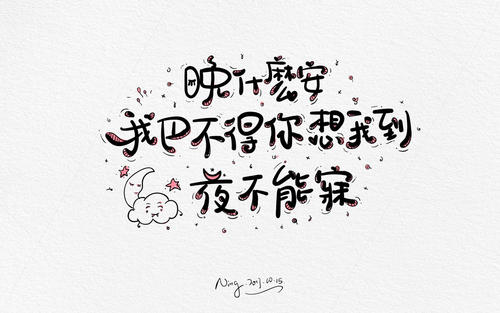 晚什麽安
我巴不得你想我到
夜不能寐
Ning.2017.10.15